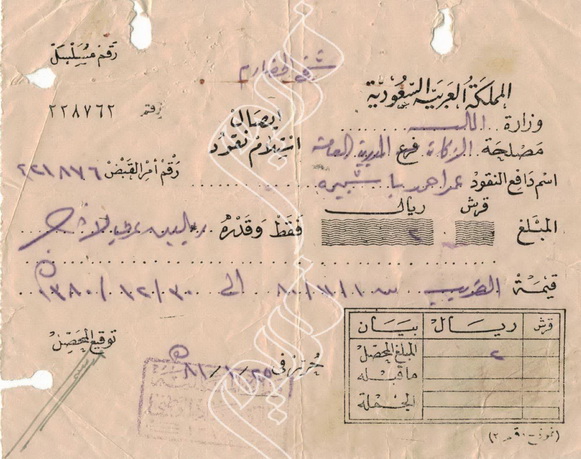 رقم مسلسل
المملكة العربية السعودية
رقم ٢٢٨٧٦٢
إيصال
وزارة المالية
استلام نقود
مصلحة الزكاة فرع المدينة
رقم أمر القبض ٢٢١٨٧٦
اسم دافع النقود عمر احمد با
قرش ريال
المبلغ ٢ فقط وقدره ريالين عربي لا غير
قيمة الضريبة ... الى ٣٠/١٢/١٣٨٠
توقيع المحصل
حرر في ٢٥/١/٨١
قرش ريال بيان
٢ المبلغ المحصل
ما قبله
الجملة
(نموذج رقم ٢)